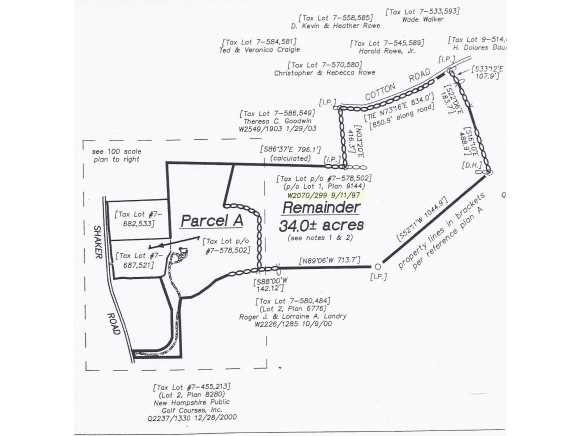 [Tax Lot 7-558,585]
D. Kevin & Heather Rowe
[Tax Lot 7-533,593]
Wade Walker
[Tax Lot 7-584,581]
Ted & Veronica Craigie
[Tax Lot 7-545,589]
Harold Rowe, Jr.
[Tax Lot 9-514,
H. Dolores Bau
[Tax Lot 7-570,580]
Christopher & Rebecca Rowe
[I.P.]
[S33°12'E
107.9']
COTTON ROAD
[Tax Lot 7-586,549]
Theresa C. Goodwin
W2549/1903 1/29/03
[I.P.]
[TIE N73°16'E 834.0']
[850.9' along road]
[S22°06'E
183.7']
[N03°23'E
416.3']
[S16°10'E
488.9']
see 100 scale
plan to right
[S86°37'E 796.1']
(calculated)
[I.P.]
[D.H.]
[Tax Lot p/o #7-578,502]
(p/o Lot 1, Plan 9144)
W2070/299 9/11/97
[Tax Lot #7-
682,533]
Parcel A
Remainder
34.0± acres
(see notes 1 & 2)
[S52°11'W 1044.9']
property lines in brackets
per reference plan A
SHAKER
ROAD
[Tax Lot p/o
#7-578,502]
[Tax Lot #7-
687,521]
[N89°06'W 713.7']
[I.P.]
[S88°00'W
142.12']
[Tax Lot 7-580,484]
(Lot 2, Plan 6776)
Roger J. & Lorraine A. Landry
W2226/1285 10/9/00
[Tax Lot #7-455,213]
(Lot 2, Plan 8280)
New Hampshire Public
Golf Courses, Inc.
Q2237/1330 12/28/2000